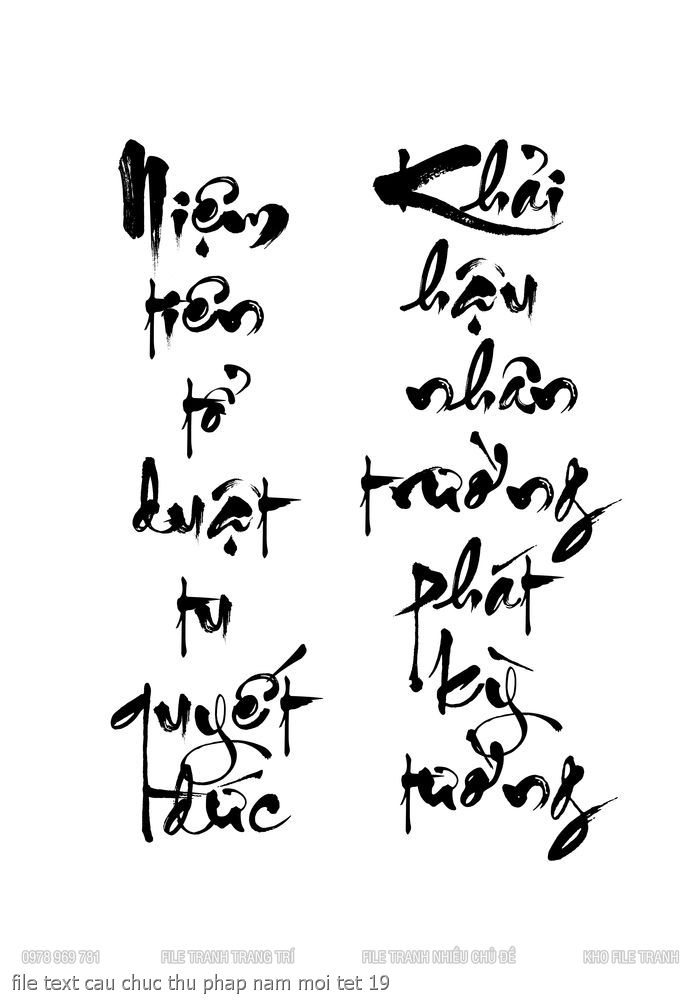 Niệm
tiên
tổ
duật
tu
quyết
đức
Khải
hậu
nhân
trường
phát
kỳ
tường
0978 969 781 FILE TRANH TRANG TRÍ FILE TRANH NHIỀU CHỦ ĐỀ KHO FILE TRANH
file text cau chuc thu phap nam moi tet 19